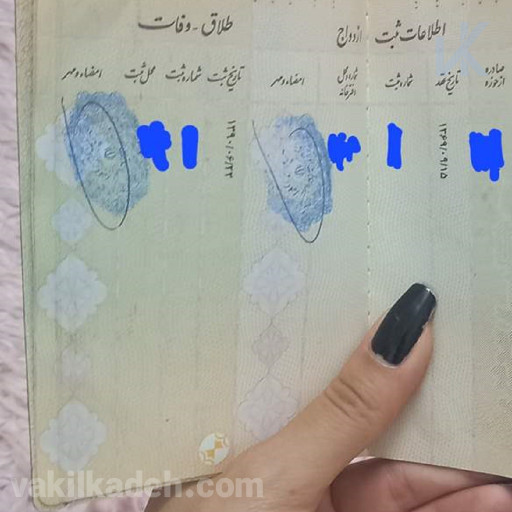 اطلاعات ثبت ازدواج
طلاق - وفات
صادره از حوزه
تاریخ عقد
شماره ثبت
شماره محل دفترخانه
امضاء و مهر
تاریخ ثبت
شماره ثبت
محل ثبت
امضاء و مهر
۱۳۶۹/۰۹/۱۵
۱۳۹۰/۰۶/۲۲
vakilkadeh.com